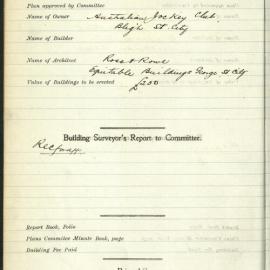 Plan approved by Committee
Name of Owner Australian Jockey Club
Bligh St City
Name of Builder
Name of Architect Ross & Rowe
Equitable Buildings George St City
Value of Buildings to be erected £200
Building Surveyor's Report to Committee.
Report Book, Folio
Plans Committee Minute Book, page
Building Fee Paid